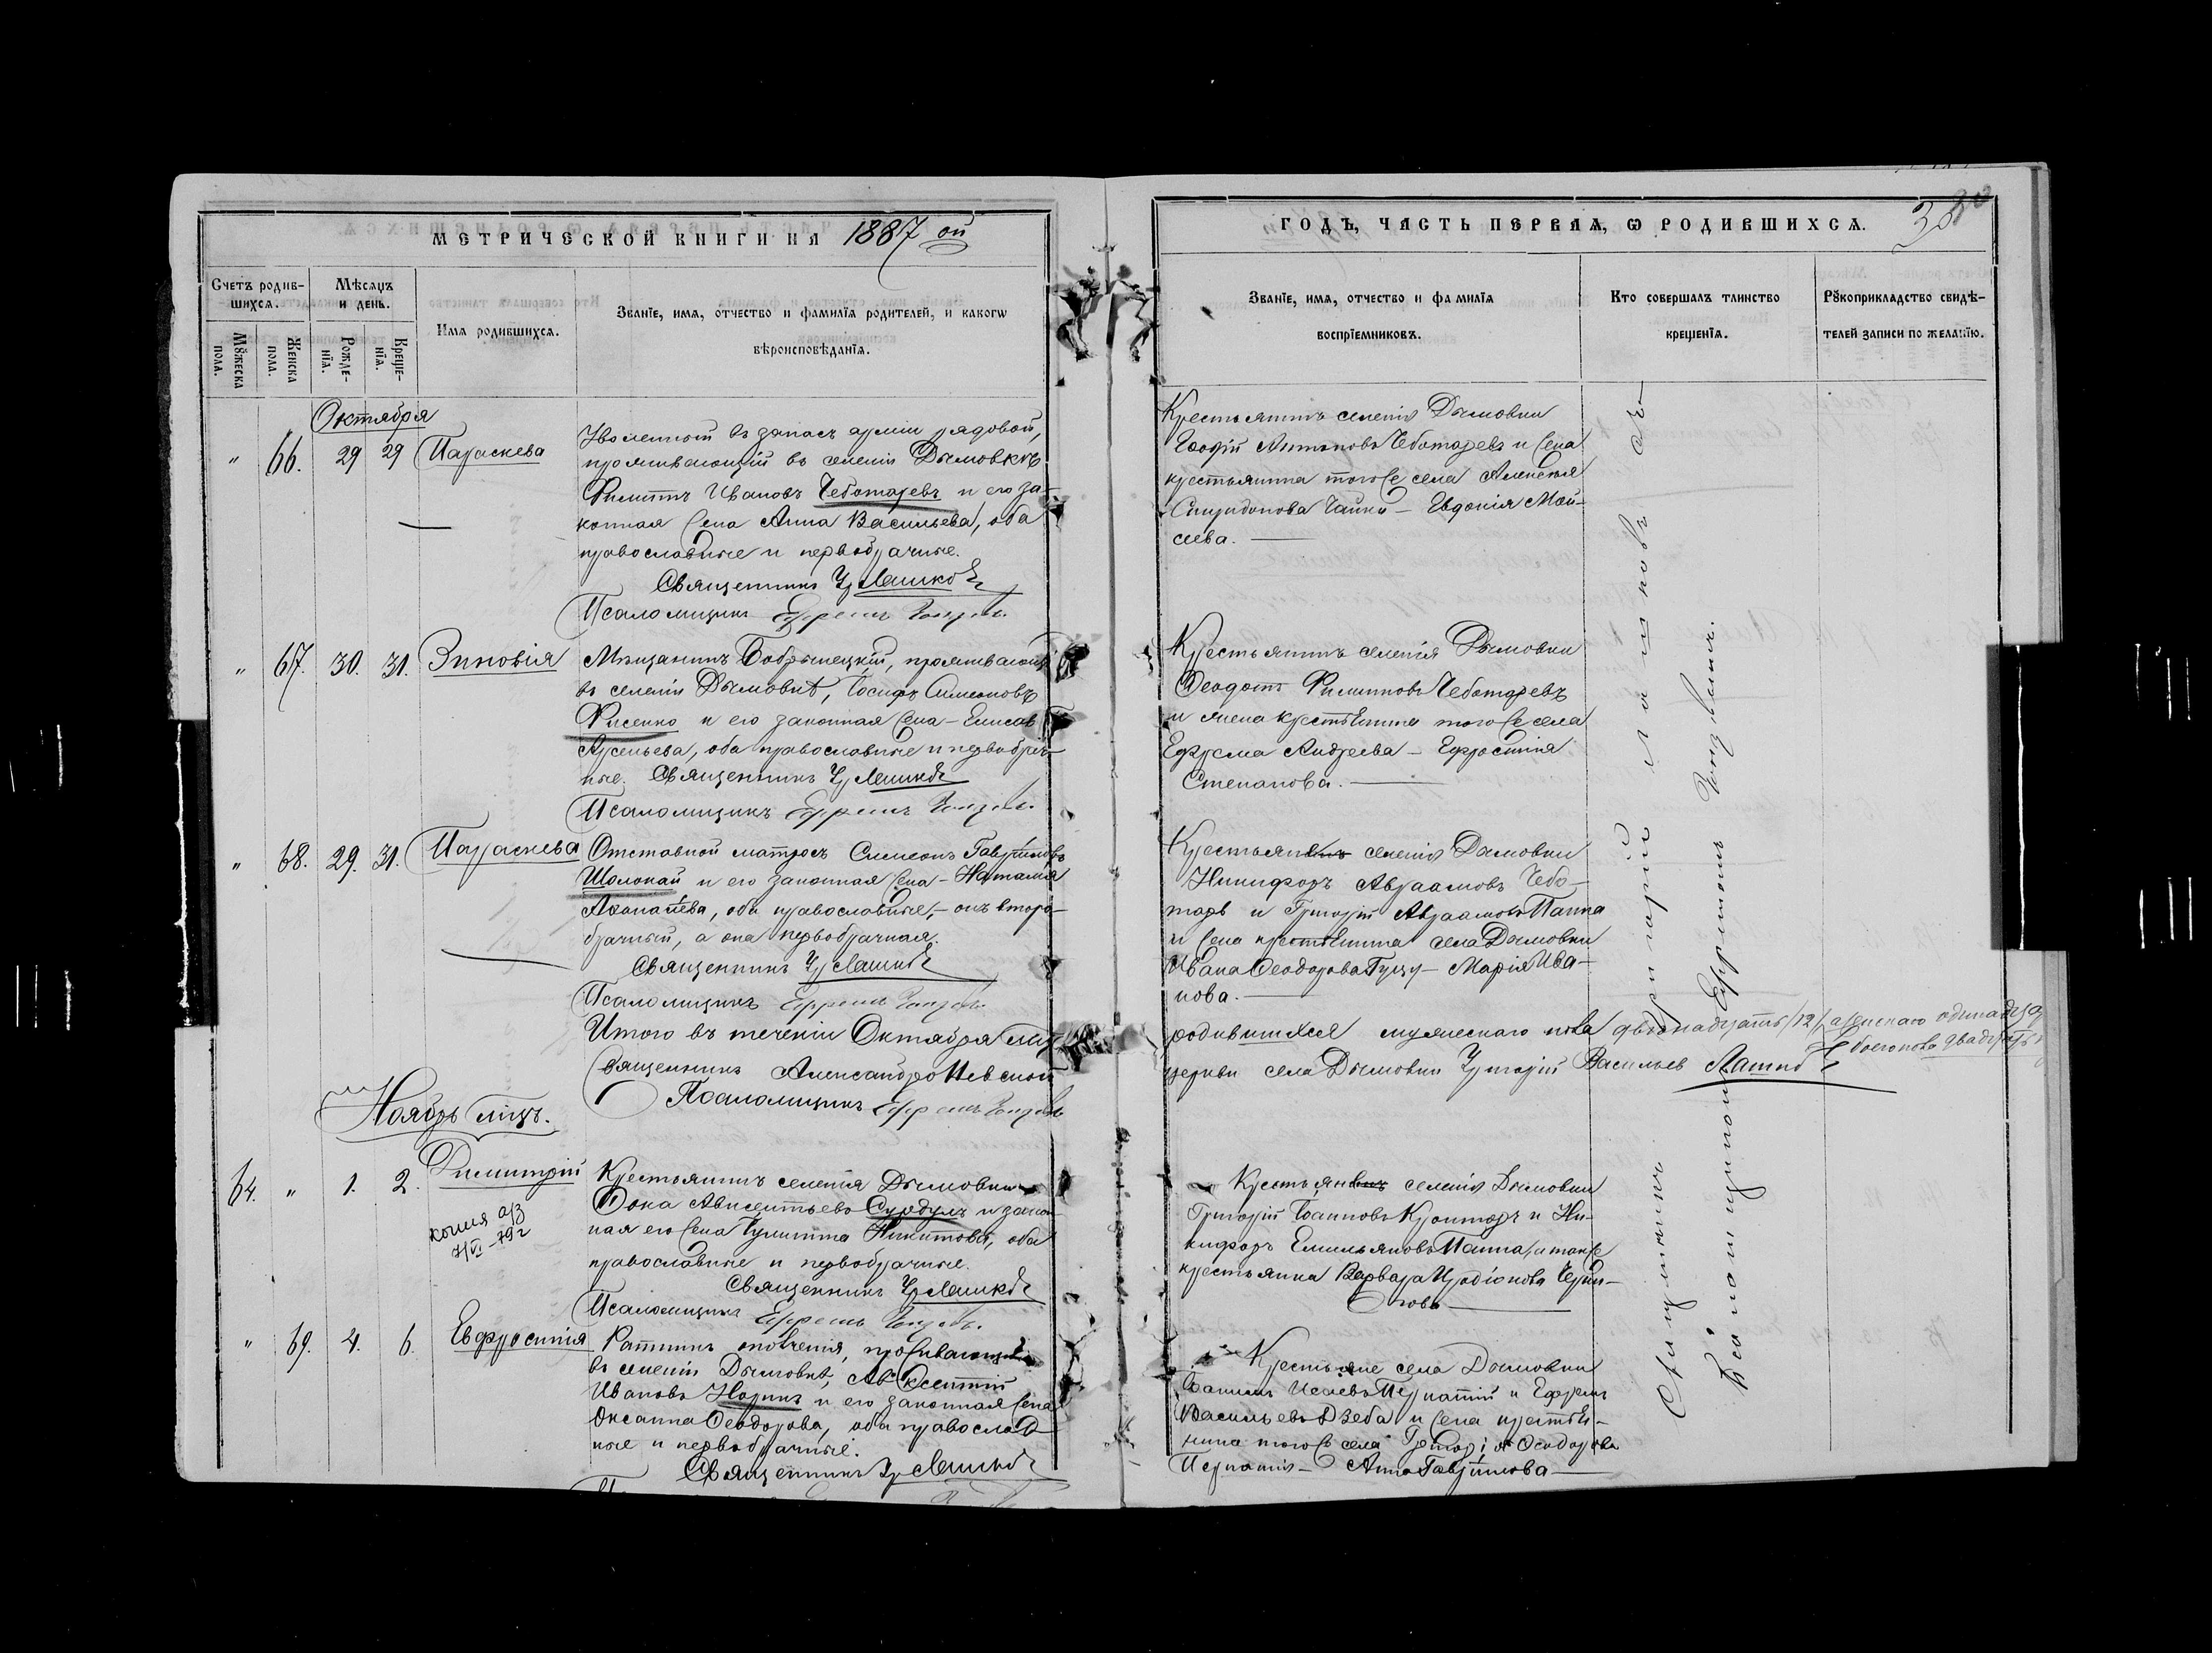 МЕТРИЧЕСКОЙ КНИГИ НА 1887 ой
Счетъ родив-
шихся.
Мѣсяцъ
и день.
Имя родившихся.
Званїе, имя, отчество и фамилїя родителей, и какогѡ
вѣроисповѣданїя.
Мꙋжеска
пола.
Женска
пола.
Рожде-
нїя.
Креще-
нїя.
Октября
" 66. 29 29 Параскева
Уволенный въ запасъ армiи рядовой,
проживающiй въ селенiи Дымовкѣ
Филиппъ Ивановъ Чеботаревъ и его за-
конная жена Анна Васильева, оба
православные и первобрачные.
Священникъ Гр Лашковъ
Псаломщикъ Ефремъ
" 67. 30. 31. Зиновiя
Мѣщанинъ Бобринецкiй, проживающ
въ селенiи Дымовкѣ, Iосифъ Симеоновъ
Фисенко и его законная жена – Елисав
Арсеньева, оба православные и первобрач-
ные. Священникъ Гр Лашковъ
Псаломщикъ Ефремъ
" 68. 29. 31. Параскева
Отставной матросъ Симеонъ Гаврiиловъ
Шолокай и его законная жена – Наталiя
Аѳанасiева, оба православные, – онъ второ-
брачный, а она первобрачная.
Священникъ Гр Лашковъ
Псаломщикъ Ефремъ
Итого въ теченiи Октября
Священникъ Александро Невской
Псаломщикъ Ефремъ
Ноябрь мѣцъ.
64. " 1. 2. Димитрiй
копия
7/VI – 79 г
Крестьянинъ селенiя Дымовки
Ѳока Авксентьевъ и закон
ная его жена Iулитта Никитова, оба
православные и первобрачные.
Священникъ Гр Лашковъ
Псаломщикъ Ефремъ
" 69. 4. 6. Евфросинiя
Ратникъ ополченiя, проживающiй
въ селенiи Дымовкѣ, Авксентiй
Ивановъ и его законная жена
Оксанна Ѳеодорова, оба православ
ные и первобрачные.
Священникъ Гр Лашковъ
ГОДЪ, ЧАСТЬ ПЕРВАЯ, Ѡ РОДИВШИХСЯ.
Званїе, имя, отчество и фамилїя
воспрїемниковъ.
Кто совершалъ таинство
крещенїя.
Рꙋкоприкладство свидѣ-
телей записи по желанїю.
Крестьянинъ селенiя Дымовки
Антоновъ Чеботаревъ и жена
крестьянина того же села Алексѣя
Спиридонова – Евдокiя Мой-
сеева.
Крестьянинъ селенiя Дымовки
Ѳеодотъ Филипповъ Чеботаревъ
и жена крестьянина того же села
Ефрема Андреева – Ефросинiя
Степанова.
Крестьянинъ селенiя Дымовки
Никифоръ Авраамовъ Чебо-
тарь и Григорiй Авраамовъ Паппа
и жена крестьянина села Дымовки
Ивана Ѳеодорова Гуцу – Марiя Ива-
нова.
родившихся мужескаго пола двенадцать /12/, женскаго
обоего пола
церкви села Дымовки Григорiй Васильевъ Лашковъ
Крестьянинъ селенiя Дымовки
Григорiй Iоанновъ и Ни-
кифоръ Емильяновъ Паппа, а также
крестьянка Варвара Иродiонова
Крестьяне села Дымовки
Исаевъ и Ефремъ
Васильевъ Дзеба и жена крестья-
нина того же села Григорiя Ѳеодорова
– Анна Гаврiилова
Священникъ Григорiй Лашковъ съ
Псаломщикомъ Ефремомъ